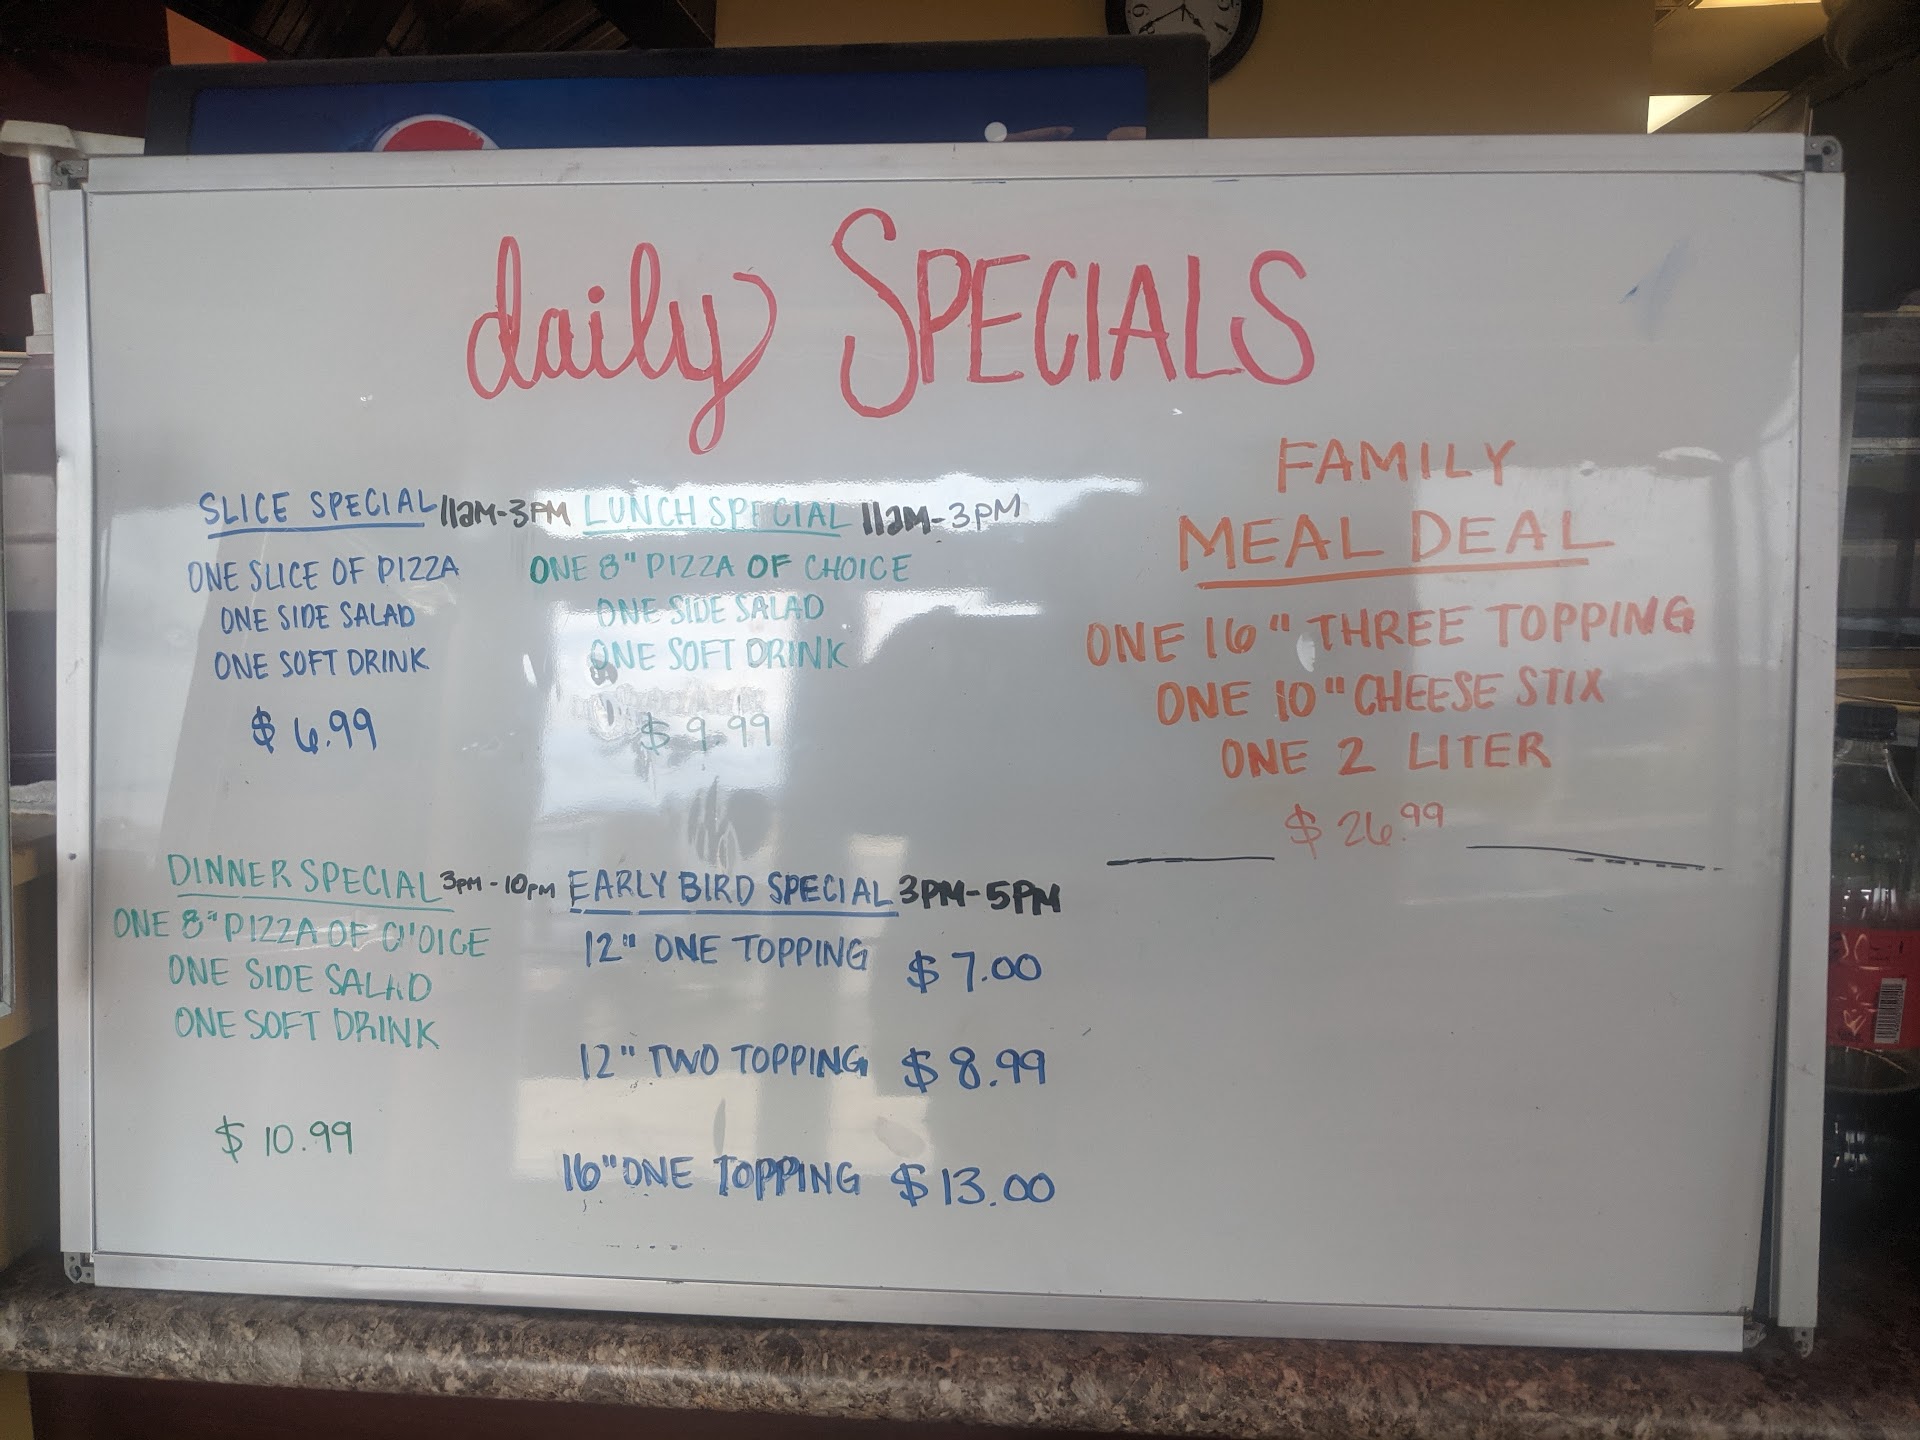 daily SPECIALS
SLICE SPECIAL 11AM-3PM
ONE SLICE OF PIZZA
ONE SIDE SALAD
ONE SOFT DRINK
$ 6.99
LUNCH SPECIAL 11AM-3PM
ONE 8" PIZZA OF CHOICE
ONE SIDE SALAD
ONE SOFT DRINK
$ 9.99
FAMILY
MEAL DEAL
ONE 16" THREE TOPPING
ONE 10" CHEESE STIX
ONE 2 LITER
$ 26.99
DINNER SPECIAL 3PM-10PM
ONE 8" PIZZA OF CHOICE
ONE SIDE SALAD
ONE SOFT DRINK
$ 10.99
EARLY BIRD SPECIAL 3PM-5PM
12" ONE TOPPING $ 7.00
12" TWO TOPPING $ 8.99
16" ONE TOPPING $ 13.00